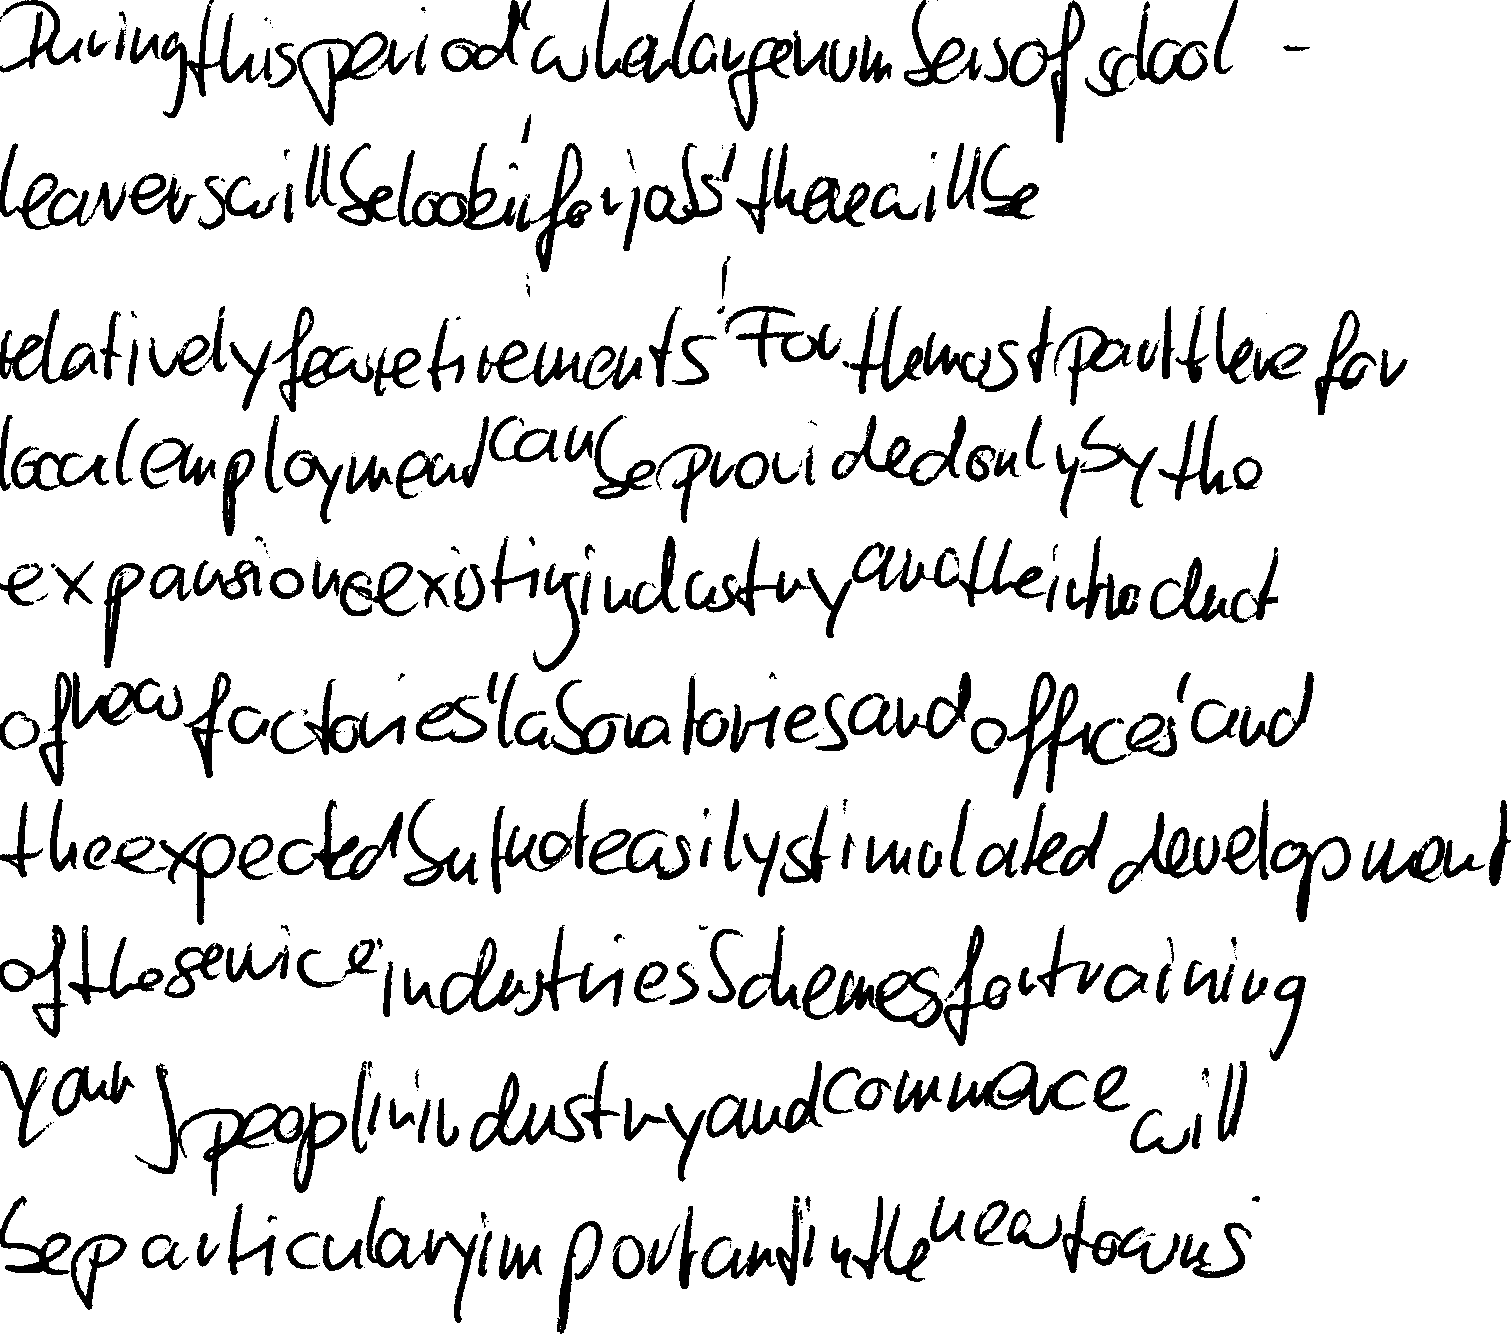 During this period, when large numbers of school -
leavers will be lookin for jobs, there will be
relatively few retirements. For the most part therefor
local employment can be provided only by the
expansion of existing industry and the introduct
of new factories, laboratories and offices, and
the expected but not easily stimulated development
of the service industries Schemes for training
young people in industry and commerce will
be particulary important in the new towns